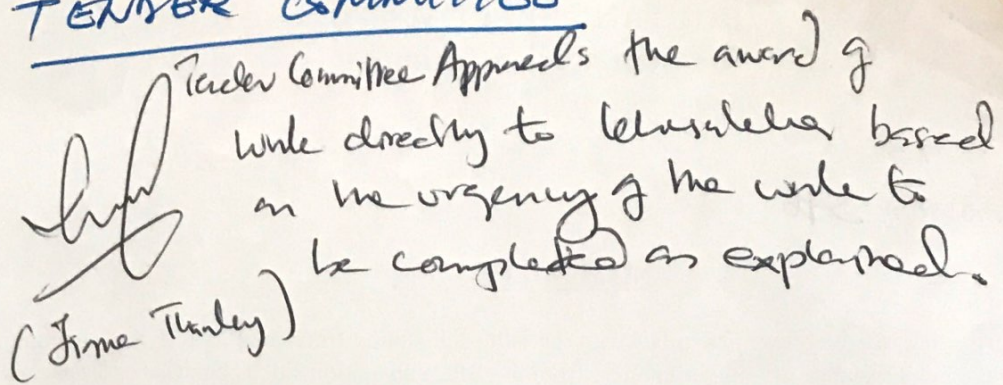 TENDER COMMITTEE
Tender Committee Approves the award of
work directly to based
on the urgency of the work to
be completed as explained.
(Jime Thinley)